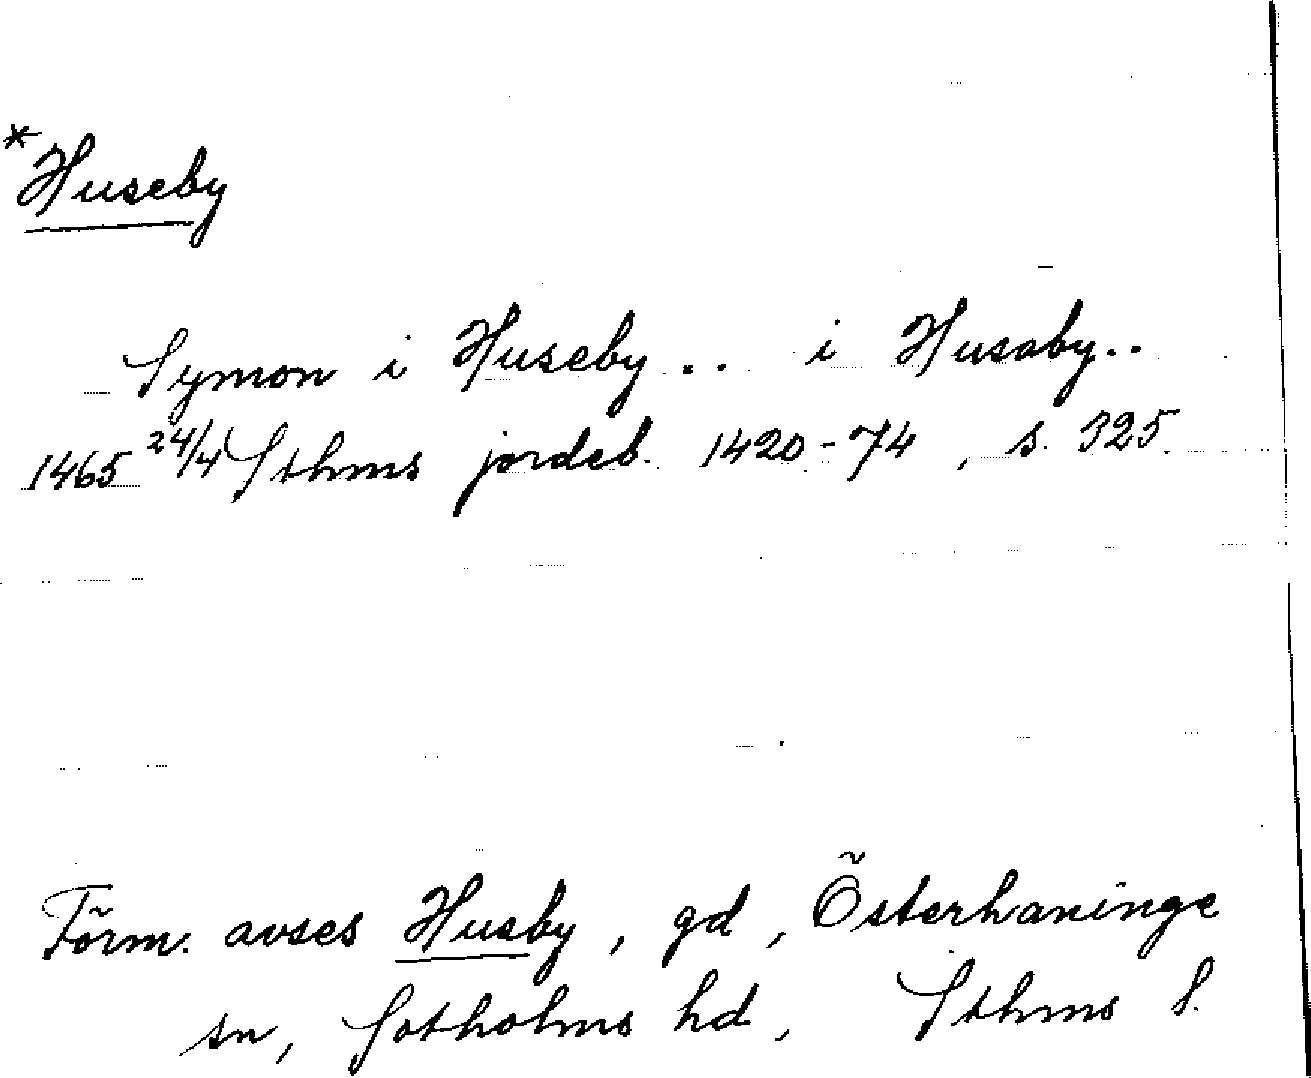 *Huseby
Symon i Huseby .. i Husaby..
1465 24/4 Sthms jordeb. 1420-74, s. 325.
Förm. avses Husby, gd, Österhaninge
sn, Sotholms hd, Sthms l.